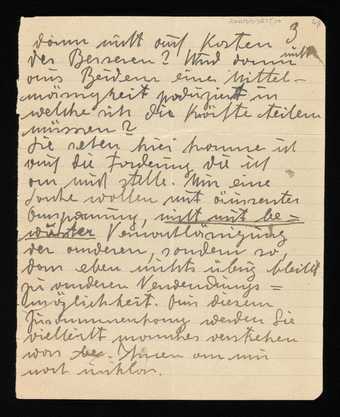 3
dann nicht auf Kosten
des Besseren? Und dann nicht
aus Beiden eine Mittel-
mässigkeit in
welche sich die Kräfte teilen
müssen?
Sie sehen hier komme ich
auf die Forderung die ich
an mich stelle. Nur eine
Sache wollen mit äusserster
Anspannung, nicht mit be=
wusster Vernachlässigung
der anderen, sondern so,
dass eben nichts übrig bleibt
zu anderen Verwendungs=
möglichkeit. Aus diesem
Zusammenhang werden Sie
vielleicht manches verstehen
was Ihnen an mir
noch unklar.